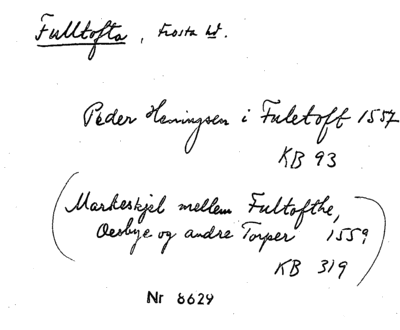 Fulltofta, Frosta hd.
Peder Henningsen i Fuletoft 1557
KB 93
(Markeskjel mellem Fultofthe,
Oesbye og andre Torper 1559
KB 319)
Nr 8629